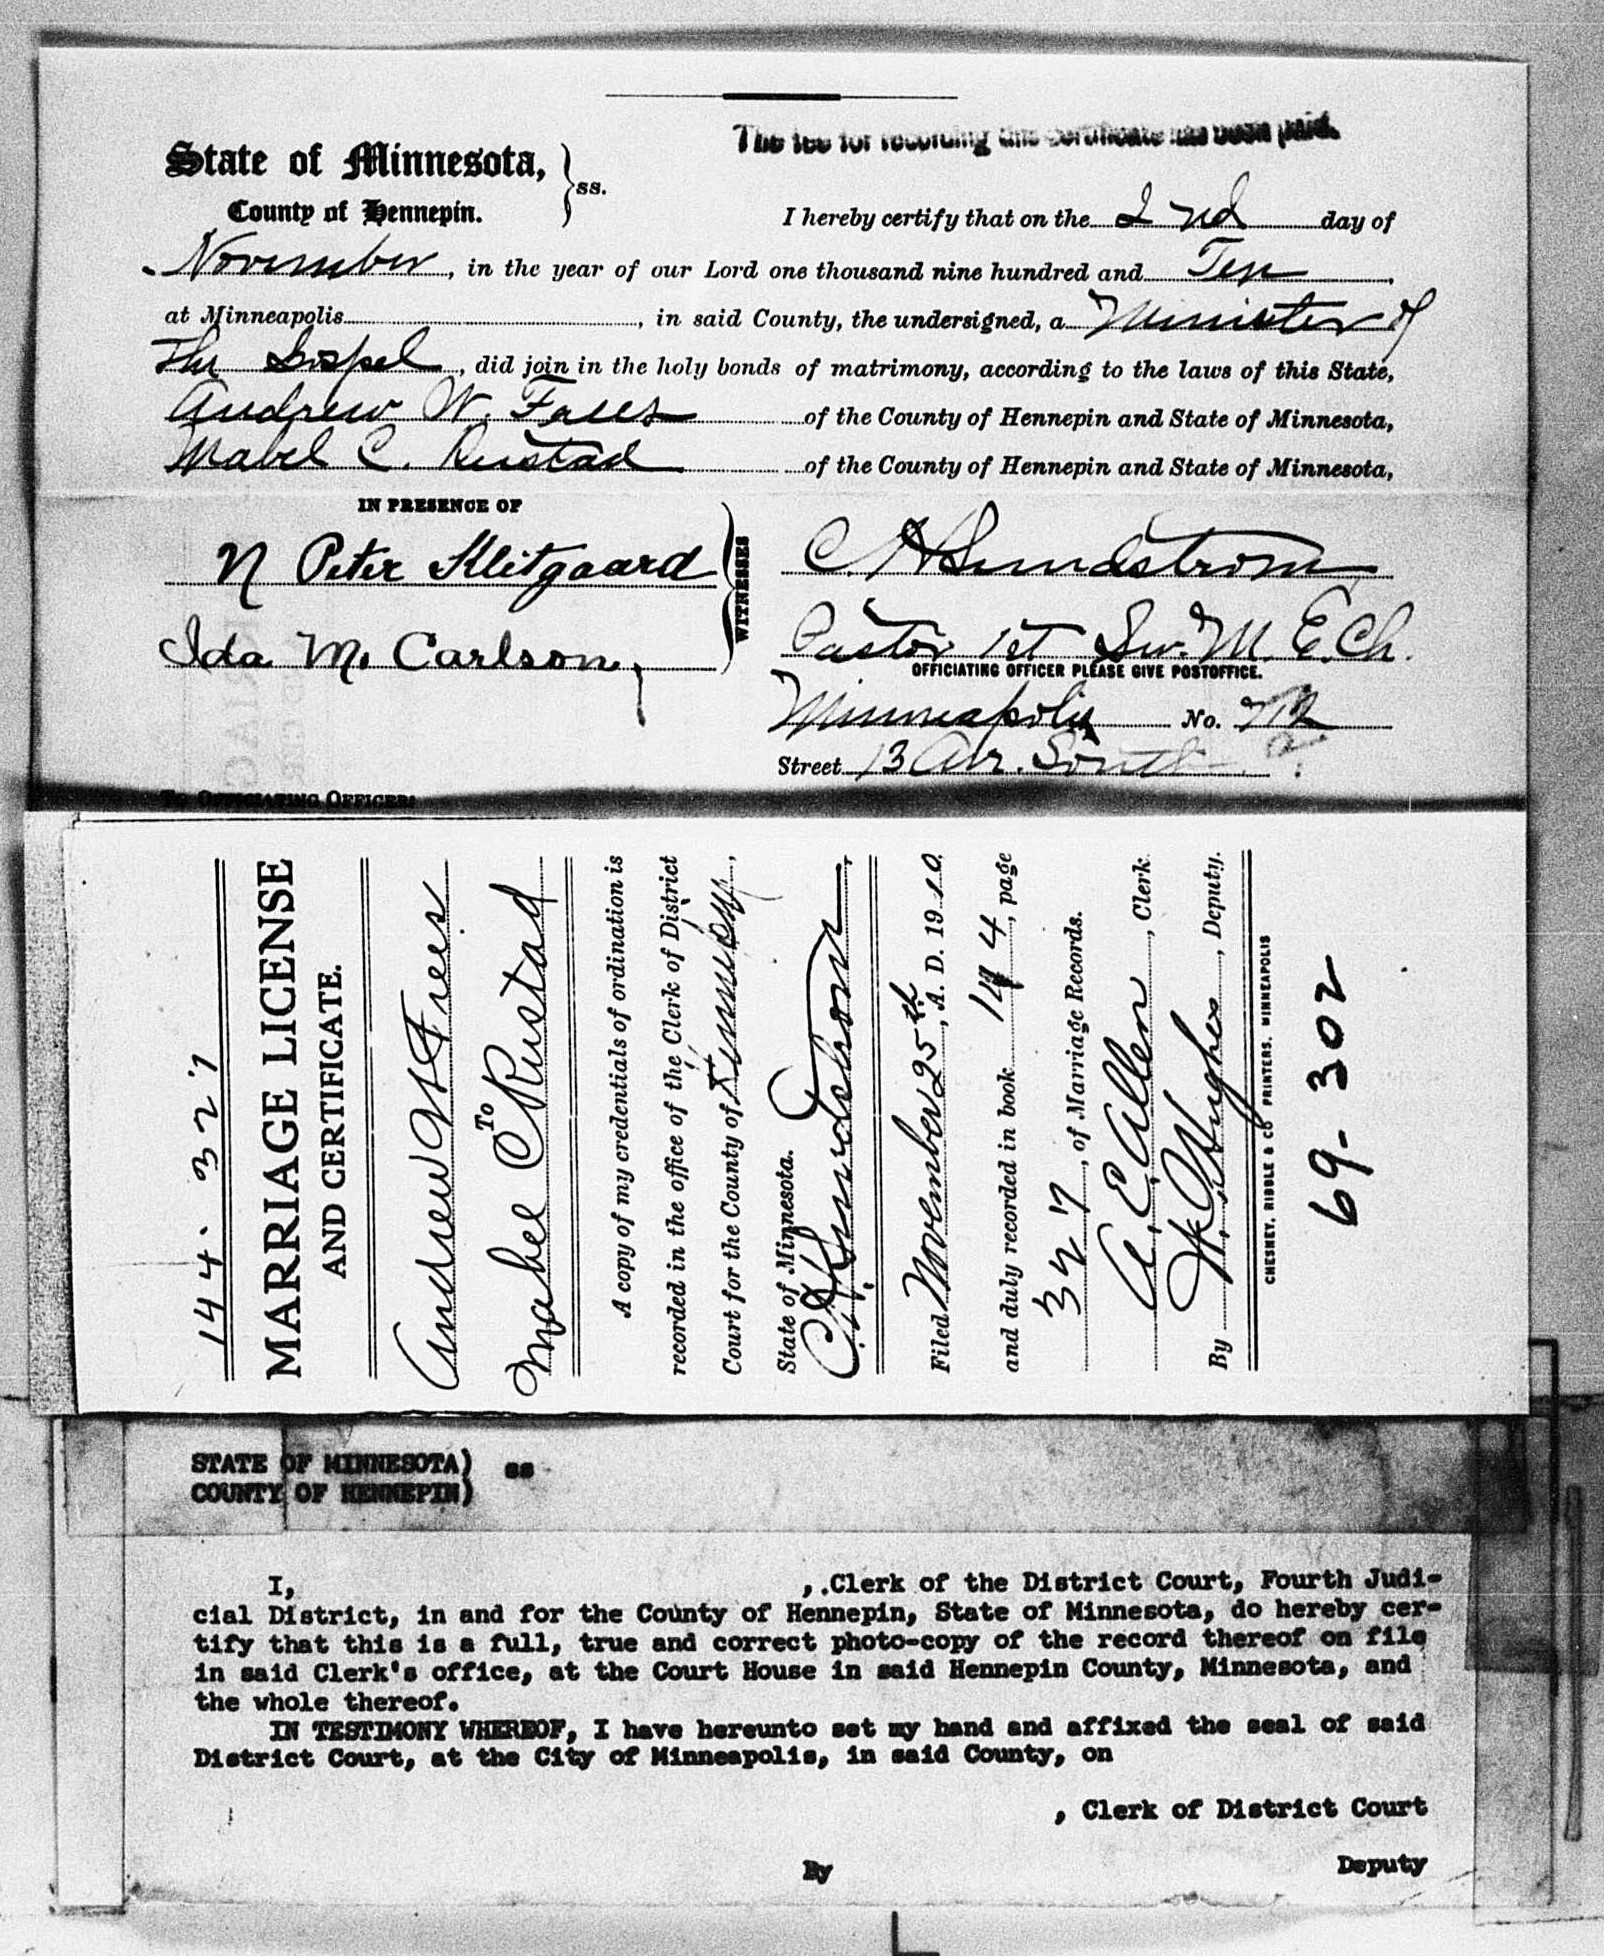 The fee for recording this certificate has been paid.
State of Minnesota,
County of Hennepin. } ss.
I hereby certify that on the 2nd day of
November, in the year of our Lord one thousand nine hundred and Ten,
at Minneapolis, in said County, the undersigned, a Minister of
The Gospel, did join in the holy bonds of matrimony, according to the laws of this State,
Andrew W. of the County of Hennepin and State of Minnesota,
Mabel C. Rustad of the County of Hennepin and State of Minnesota,
IN PRESENCE OF
N Peter Klitgaard
Ida M. Carlson,
WITNESSES
C. A. Lundstrom
Pastor 1st Sw. M. E. Ch.
OFFICIATING OFFICER PLEASE GIVE POSTOFFICE.
Minneapolis No. 712
Street 13 Ave. South
TO OFFICIATING OFFICER:
144. 327
MARRIAGE LICENSE
AND CERTIFICATE.
Andrew W
To
Mabel C Rustad
A copy of my credentials of ordination is
recorded in the office of the Clerk of District
Court for the County of
State of Minnesota.
C. A. Lundstrom
Filed November 25th, A. D. 1910.
and duly recorded in book 144, page
327, of Marriage Records.
A. E. Allen, Clerk.
By H. Hughes, Deputy.
CHESNEY, RIDDLE & CO PRINTERS, MINNEAPOLIS
69-302
STATE OF MINNESOTA) ss
COUNTY OF HENNEPIN)
I, , .Clerk of the District Court, Fourth Judi-
cial District, in and for the County of Hennepin, State of Minnesota, do hereby cer-
tify that this is a full, true and correct photo-copy of the record thereof on file
in said Clerk's office, at the Court House in said Hennepin County, Minnesota, and
the whole thereof.
IN TESTIMONY WHEREOF, I have hereunto set my hand and affixed the seal of said
District Court, at the City of Minneapolis, in said County, on
, Clerk of District Court
By Deputy